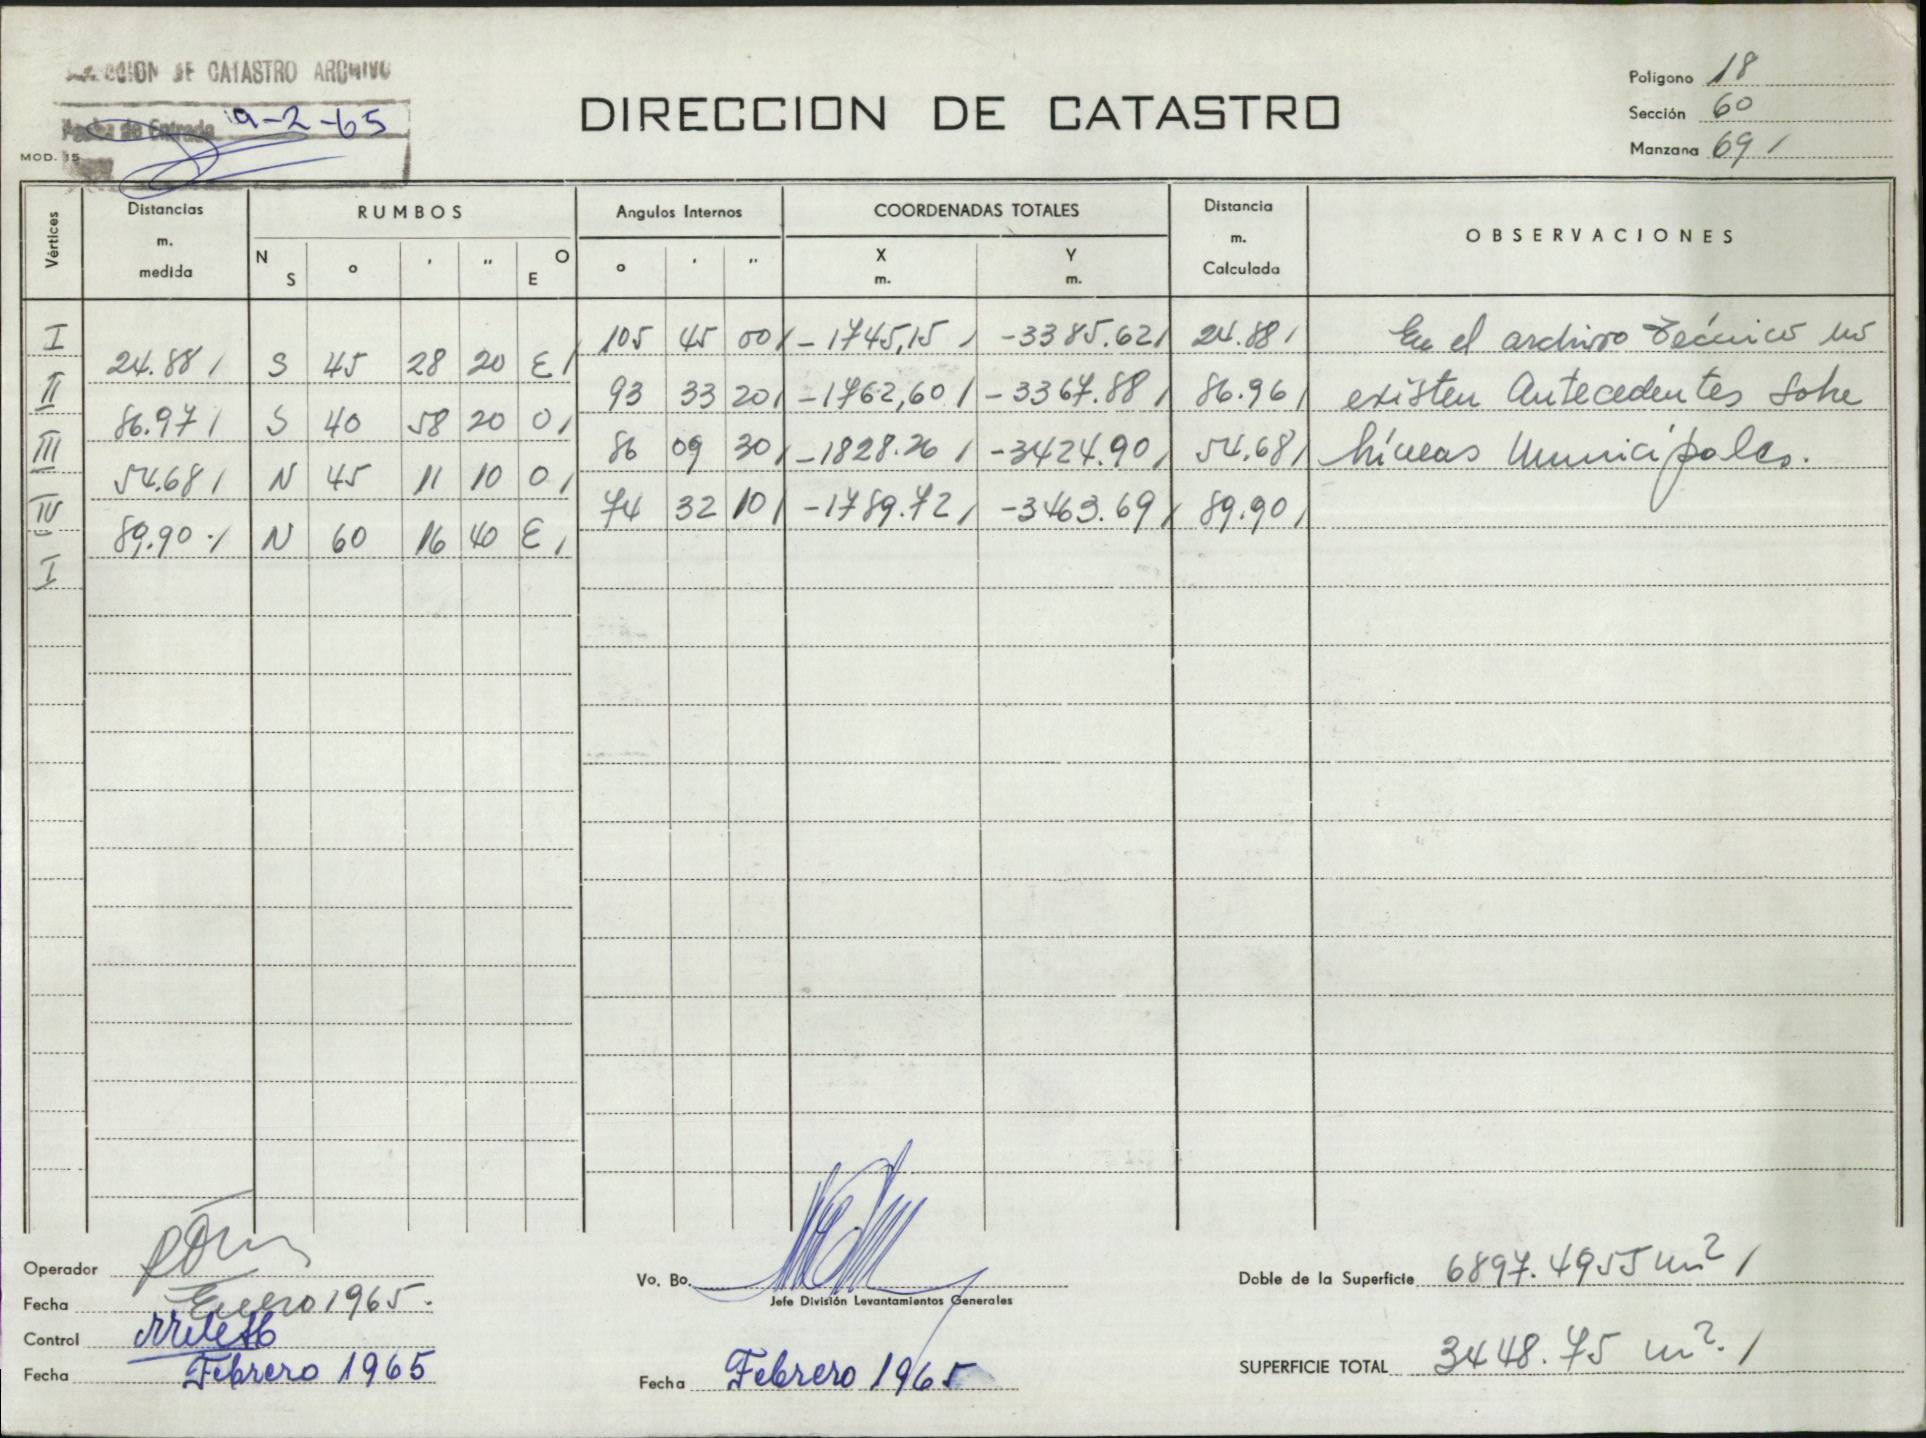 DE CATASTRO ARCHIVO
Fecha de Entrada 19-2-65
MOD. 15
DIRECCION DE CATASTRO
Polígono 18
Sección 60
Manzana 69 /
Vértices
Distancias m. medida
RUMBOS
N S ° ' " O E
Angulos Internos
° ' "
COORDENADAS TOTALES
X m. Y m.
Distancia m. Calculada
OBSERVACIONES
I 105 45 00 / -1745,15 / -3385.62 / 24.88 / En el archivo Técnico no
24.88 / S 45 28 20 E /
II 93 33 20 / -1762,60 / -3367.88 / 86.96 / existen Antecedentes Sobre
86.97 / S 40 58 20 O /
III 86 09 30 / -1828.26 / -3424.90 / 54.68 / líneas Municipales.
54.68 / N 45 11 10 O /
IV 74 32 10 / -1789.72 / -3463.69 / 89.90 /
89.90 / N 60 16 40 E /
I
Operador
Fecha Enero 1965.
Control
Fecha Febrero 1965
Vo. Bo.
Jefe División Levantamientos Generales
Fecha Febrero 1965
Doble de la Superficie 6897.4955 m² /
SUPERFICIE TOTAL 3448.75 m². /